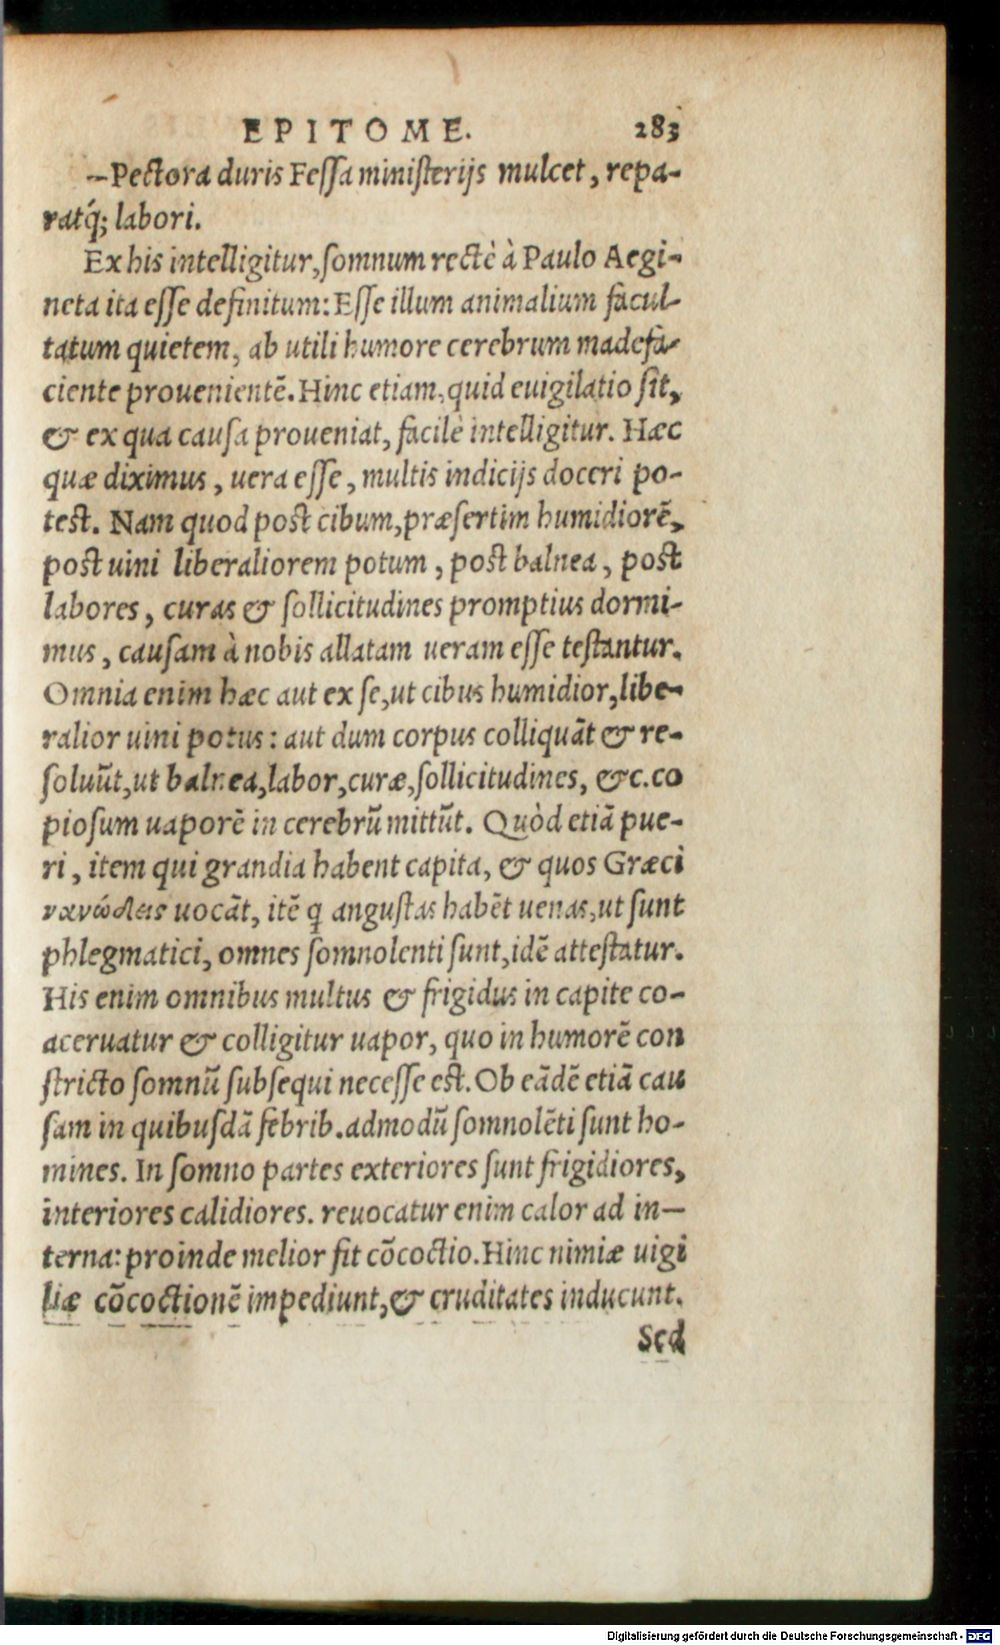 EPITOME. 283
—Pectora duris Fessa ministerijs mulcet, repa-
ratq́; labori.
Ex his intelligitur, somnum rectè à Paulo Aegi-
neta ita esse definitum: Esse illum animalium facul-
tatum quietem, ab utili humore cerebrum madefa-
ciente prouenientẽ. Hinc etiam, quid euigilatio sit,
& ex qua causa proueniat, facilè intelligitur. Hæc
quæ diximus, uera esse, multis indicijs doceri po-
test. Nam quod post cibum, præsertim humidiorẽ,
post uini liberaliorem potum, post balnea, post
labores, curas & sollicitudines promptius dormi-
mus, causam à nobis allatam ueram esse testantur.
Omnia enim hæc aut ex se, ut cibus humidior, libe-
ralior uini potus: aut dum corpus colliquãt & re-
soluũt, ut balnea, labor, curæ, sollicitudines, &c. co
piosum uaporẽ in cerebrũ mittũt. Quòd etiã pue-
ri, item qui grandia habent capita, & quos Græci
νανώδεις uocãt, itẽ q̃ angustas habẽt uenas, ut sunt
phlegmatici, omnes somnolenti sunt, idẽ attestatur.
His enim omnibus multus & frigidus in capite co-
aceruatur & colligitur uapor, quo in humorẽ con
stricto somnũ subsequi necesse est. Ob eãdẽ etiã cau
sam in quibusdã febrib. admodũ somnolẽti sunt ho-
mines. In somno partes exteriores sunt frigidiores,
interiores calidiores. reuocatur enim calor ad in-
terna: proinde melior fit cõcoctio. Hinc nimiæ uigi
liæ cõcoctionẽ impediunt, & cruditates inducunt.
Sed
Digitalisierung gefördert durch die Deutsche Forschungsgemeinschaft - DFG